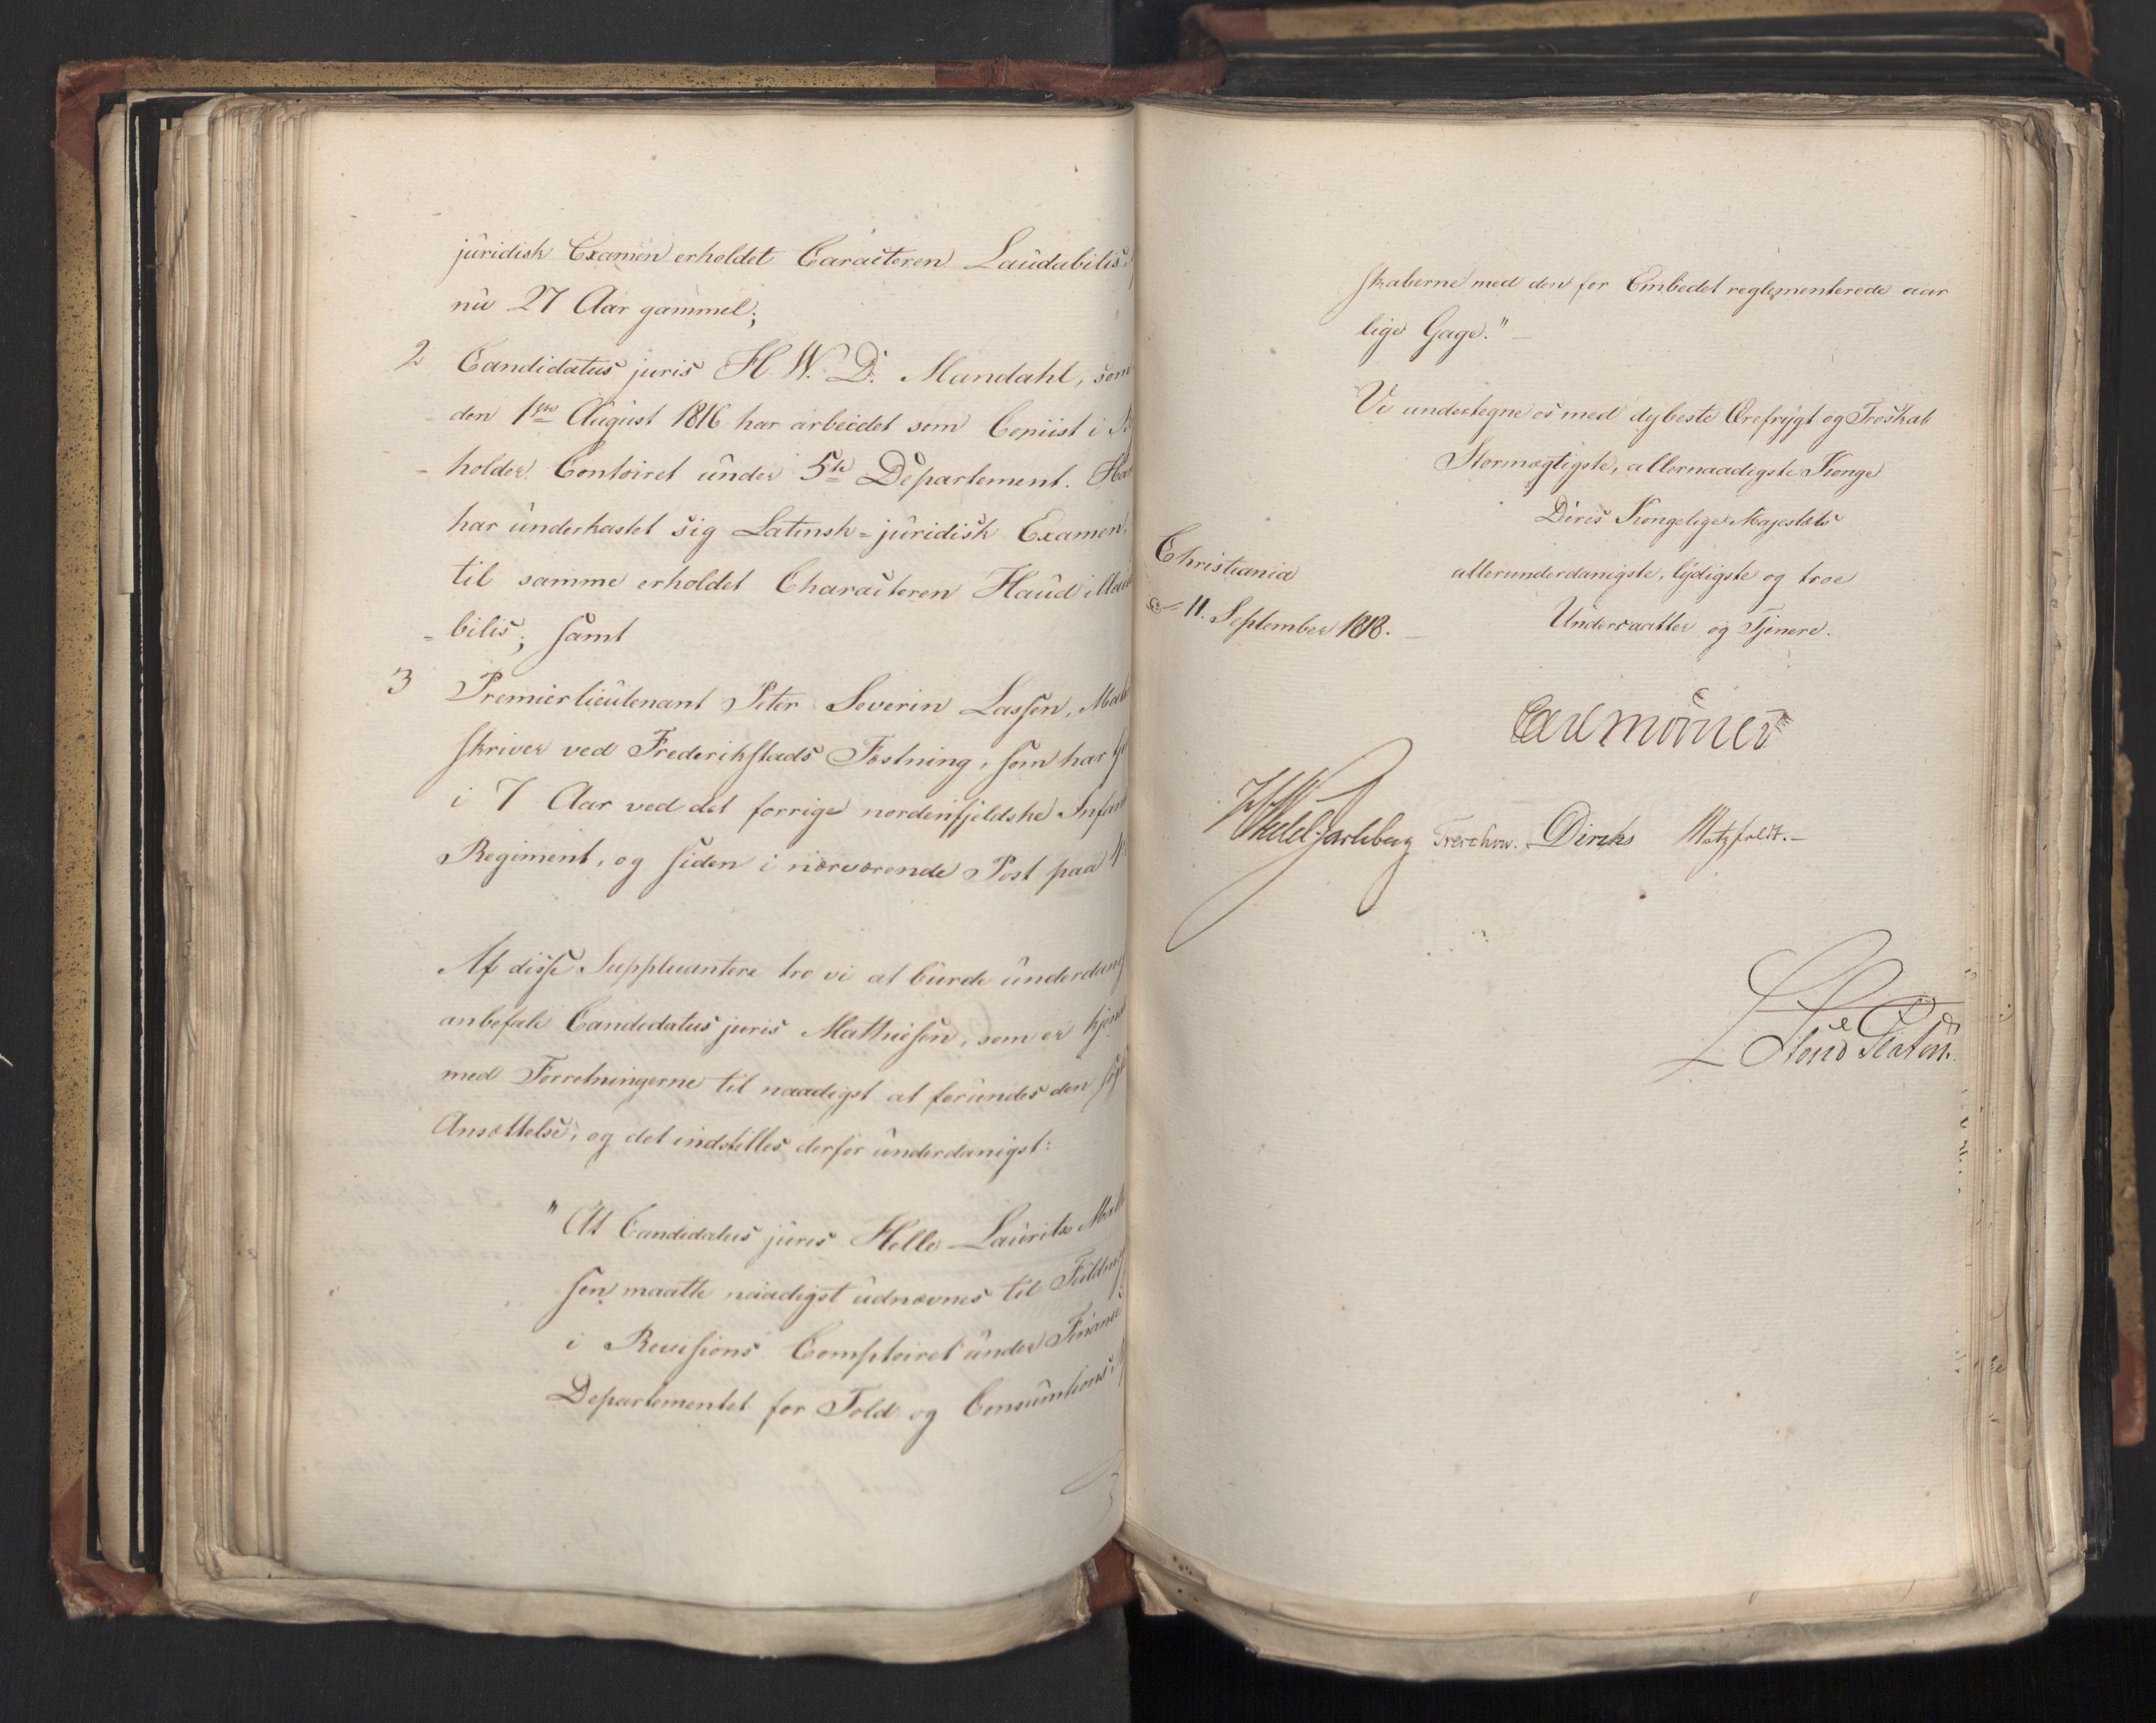 juridisk Examen erholdet Caracteren Laudabilis,
nu 27 Aar gammel;
2 Candidatus juris H. W. D. Mandahl, som
den 1ste August 1816 har arbeidet som Copiist i
holder Contoiret under 5te Departement. Han
har underkastet sig Latinsk-juridisk Examen,
til samme erholdet Characteren Haud illau
bilis; samt
3 Premierlieutenant Peter Severin Lassen, Mate
skriver ved Frederikstads Fæstning, som har
i 7 Aar ved det forrige nordenfjeldske Infant
Regiment, og siden i nærværende Post paa
Af disse Supplicantere tro vi at burde underdanigs
anbefale Candidatus juris Mathiesen, som er kjend
med Forretningerne til naadigst at forundes den søgte
Ansættelse, og det indstilles derfor underdanigst:
"At Candidatus juris Helle Lauritz Math
sen maatte naadigst udnævnes til Fuldm
i Revisions Comptoiret under Finance
Departementet for Told og Consumtions
skaberne med den for Embedet reglementerede aar
lige Gage."
Vi undertegne os med dybeste Ærefrygt og Troskab
Stormægtigste, allernaadigste Konge
Deres Kongelige Majestæts
Christiania allerunderdanigste, lydigste og troe
11. September 1818. Undersaatter og Tjenere.
Carl Mörner
Wedel Jarlsberg Treschow. Diriks Motzfeldt.